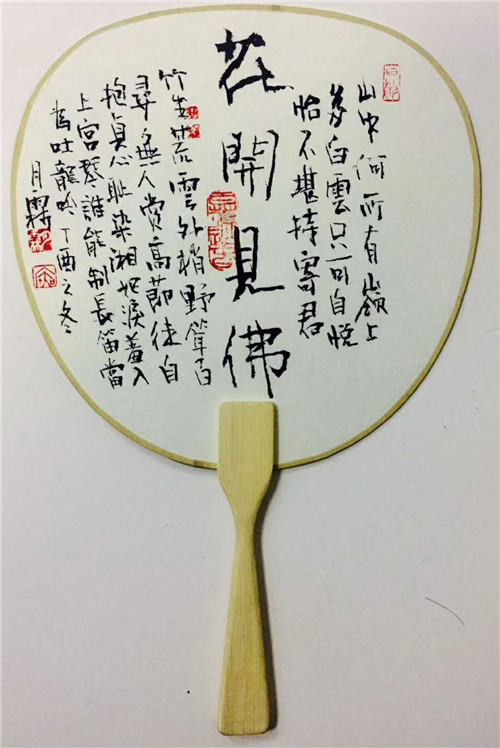 山中何所有嶺上
多白雲只可自悦
怡不堪持寄君
花開見佛
竹生荒雲外梢野聳百
尋無人賞高節徒自
抱貞心耻染湘妃淚羞入
上宮琴誰能制長笛當
為吐龍吟丁酉之冬
月霖